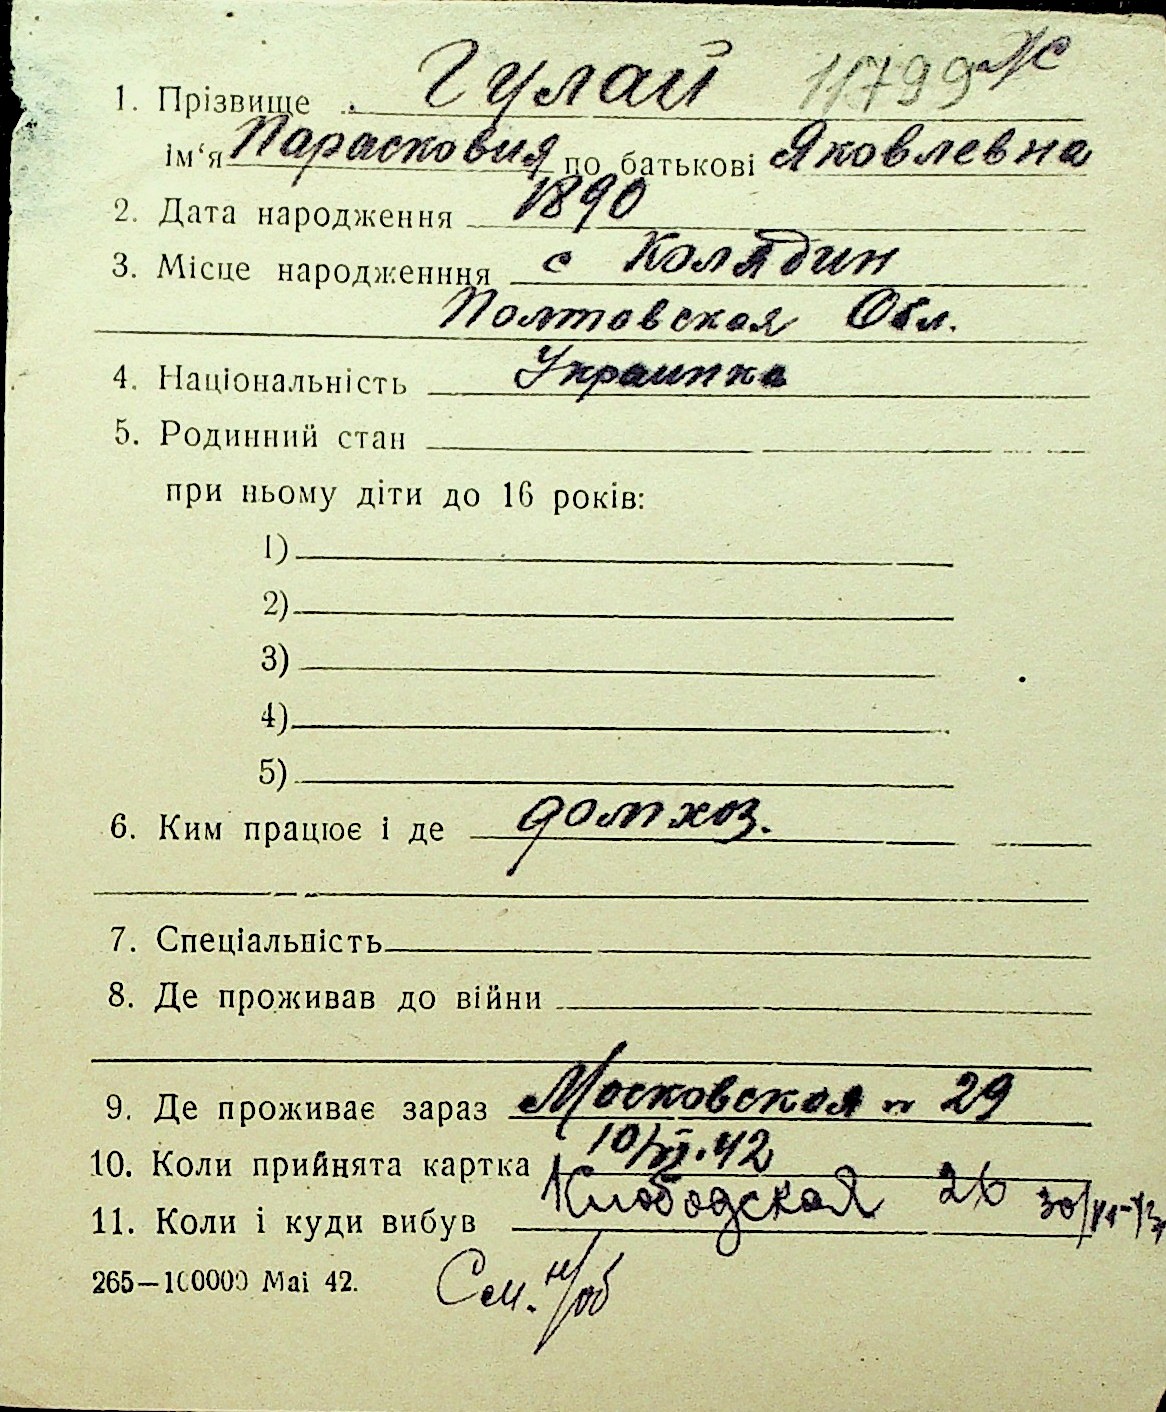 1. Прізвище Гулай 11799 Ж
ім‘я Парасковия по батькові Яковлевна
2. Дата народження 1890
3. Місце народженння с Колядин
Полтовская Обл.
4. Національність Украинка
5. Родинний стан
при ньому діти до 16 років:
1)
2)
3)
4)
5)
6. Ким працює і де домхоз.
7. Спеціальність
8. Де проживав до війни
9. Де проживає зараз Московская 29
10. Коли прийнята картка 10/VI.42
11. Коли і куди вибув 26
265—100000 Маі 42.
См. н/об